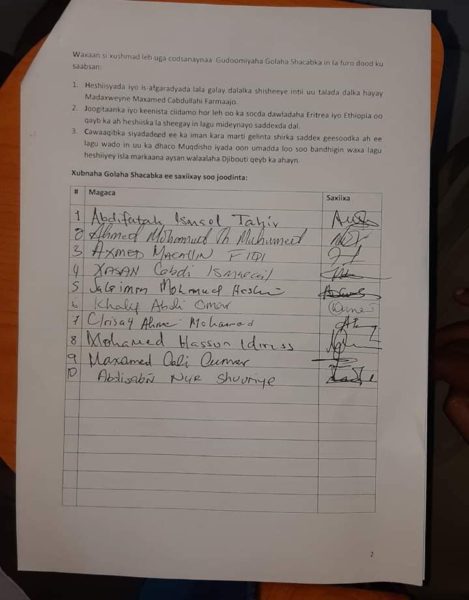 Waxaan si xushmad leh uga codsanaynaa Gudoomiyaha Golaha Shacabka in la furo dood ku
saabsan:
1. Heshiisyada iyo is afgaradyada lala galay dalalka shisheeye intii uu talada dalka hayay
Madaxweyne Maxamed Cabdullahi Farmaajo.
2. Joogitaanka iyo keenista ciidamo hor leh oo ka socda dawladaha Eretrea iyo Ethiopia oo
qayb ka ah heshiiska la sheegay in lagu mideynayo saddexda dal.
3. Cawaaqibka siyadadeed ee ka iman kara marti gelinta shirka saddex geesoodka ah ee
lagu wado in uu ka dhaco Muqdisho iyada oon umadda loo soo bandhigin waxa lagu
heshiiyey isla markaana aysan walaalaha Djibouti qeyb ka ahayn.
Xubnaha Golaha Shacabka ee saxiixay soo joodinta:
# Magaca Saxiixa
1 Abdifatah Ismael Tahir
2 Ahmed Mohamud Muhumed
3 Axmed Macallin Fiqi
4 Xasan Cabdi Ismaaciil
5 Mohamud
6 Khalif Abdi Omar
7 Mohamed
8 Mohamed Hassan Idriss
9 Maxamed Cali Cumar
10 Abdisabir Nur Shuuriye
2